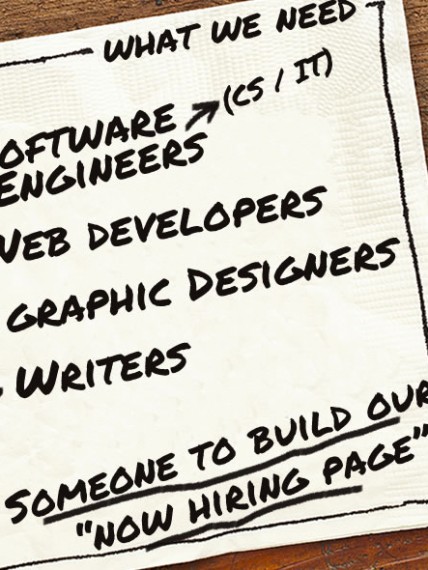 WHAT WE NEED
(CS / IT)
OFTWARE
ENGINEERS
WEB DEVELOPERS
GRAPHIC DESIGNERS
WRITERS
SOMEONE TO BUILD OUR
"NOW HIRING PAGE"